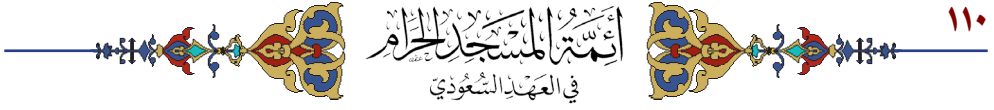 ١١٠
أَئِمَّةُ المَسْجِدِ الحَرَامِ
في العَهْدِ السُّعُودِيّ